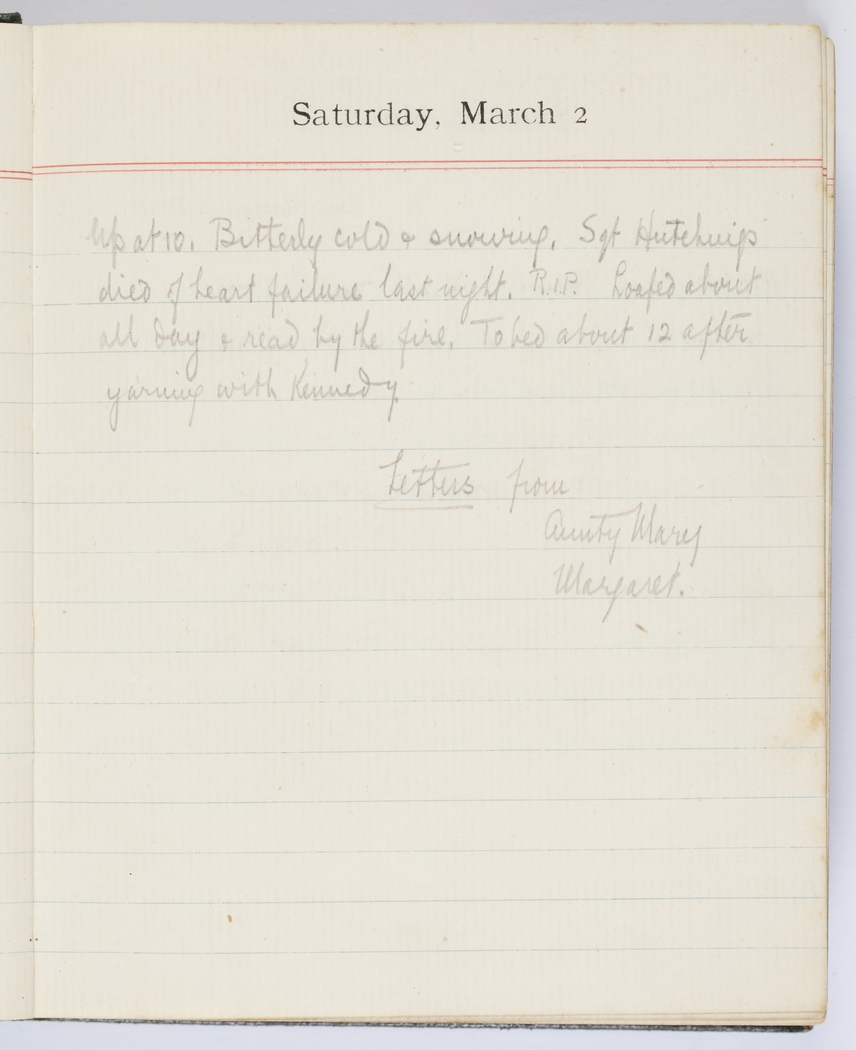 Saturday, March 2
Up at 10. Bitterly cold & snowing. Sgt Hutchings
died of heart failure last night. R.I.P. Loafed about
all day & read by the fire. To bed about 12 after
yarning with Kennedy
Letters from
Aunty Mary
Margaret.